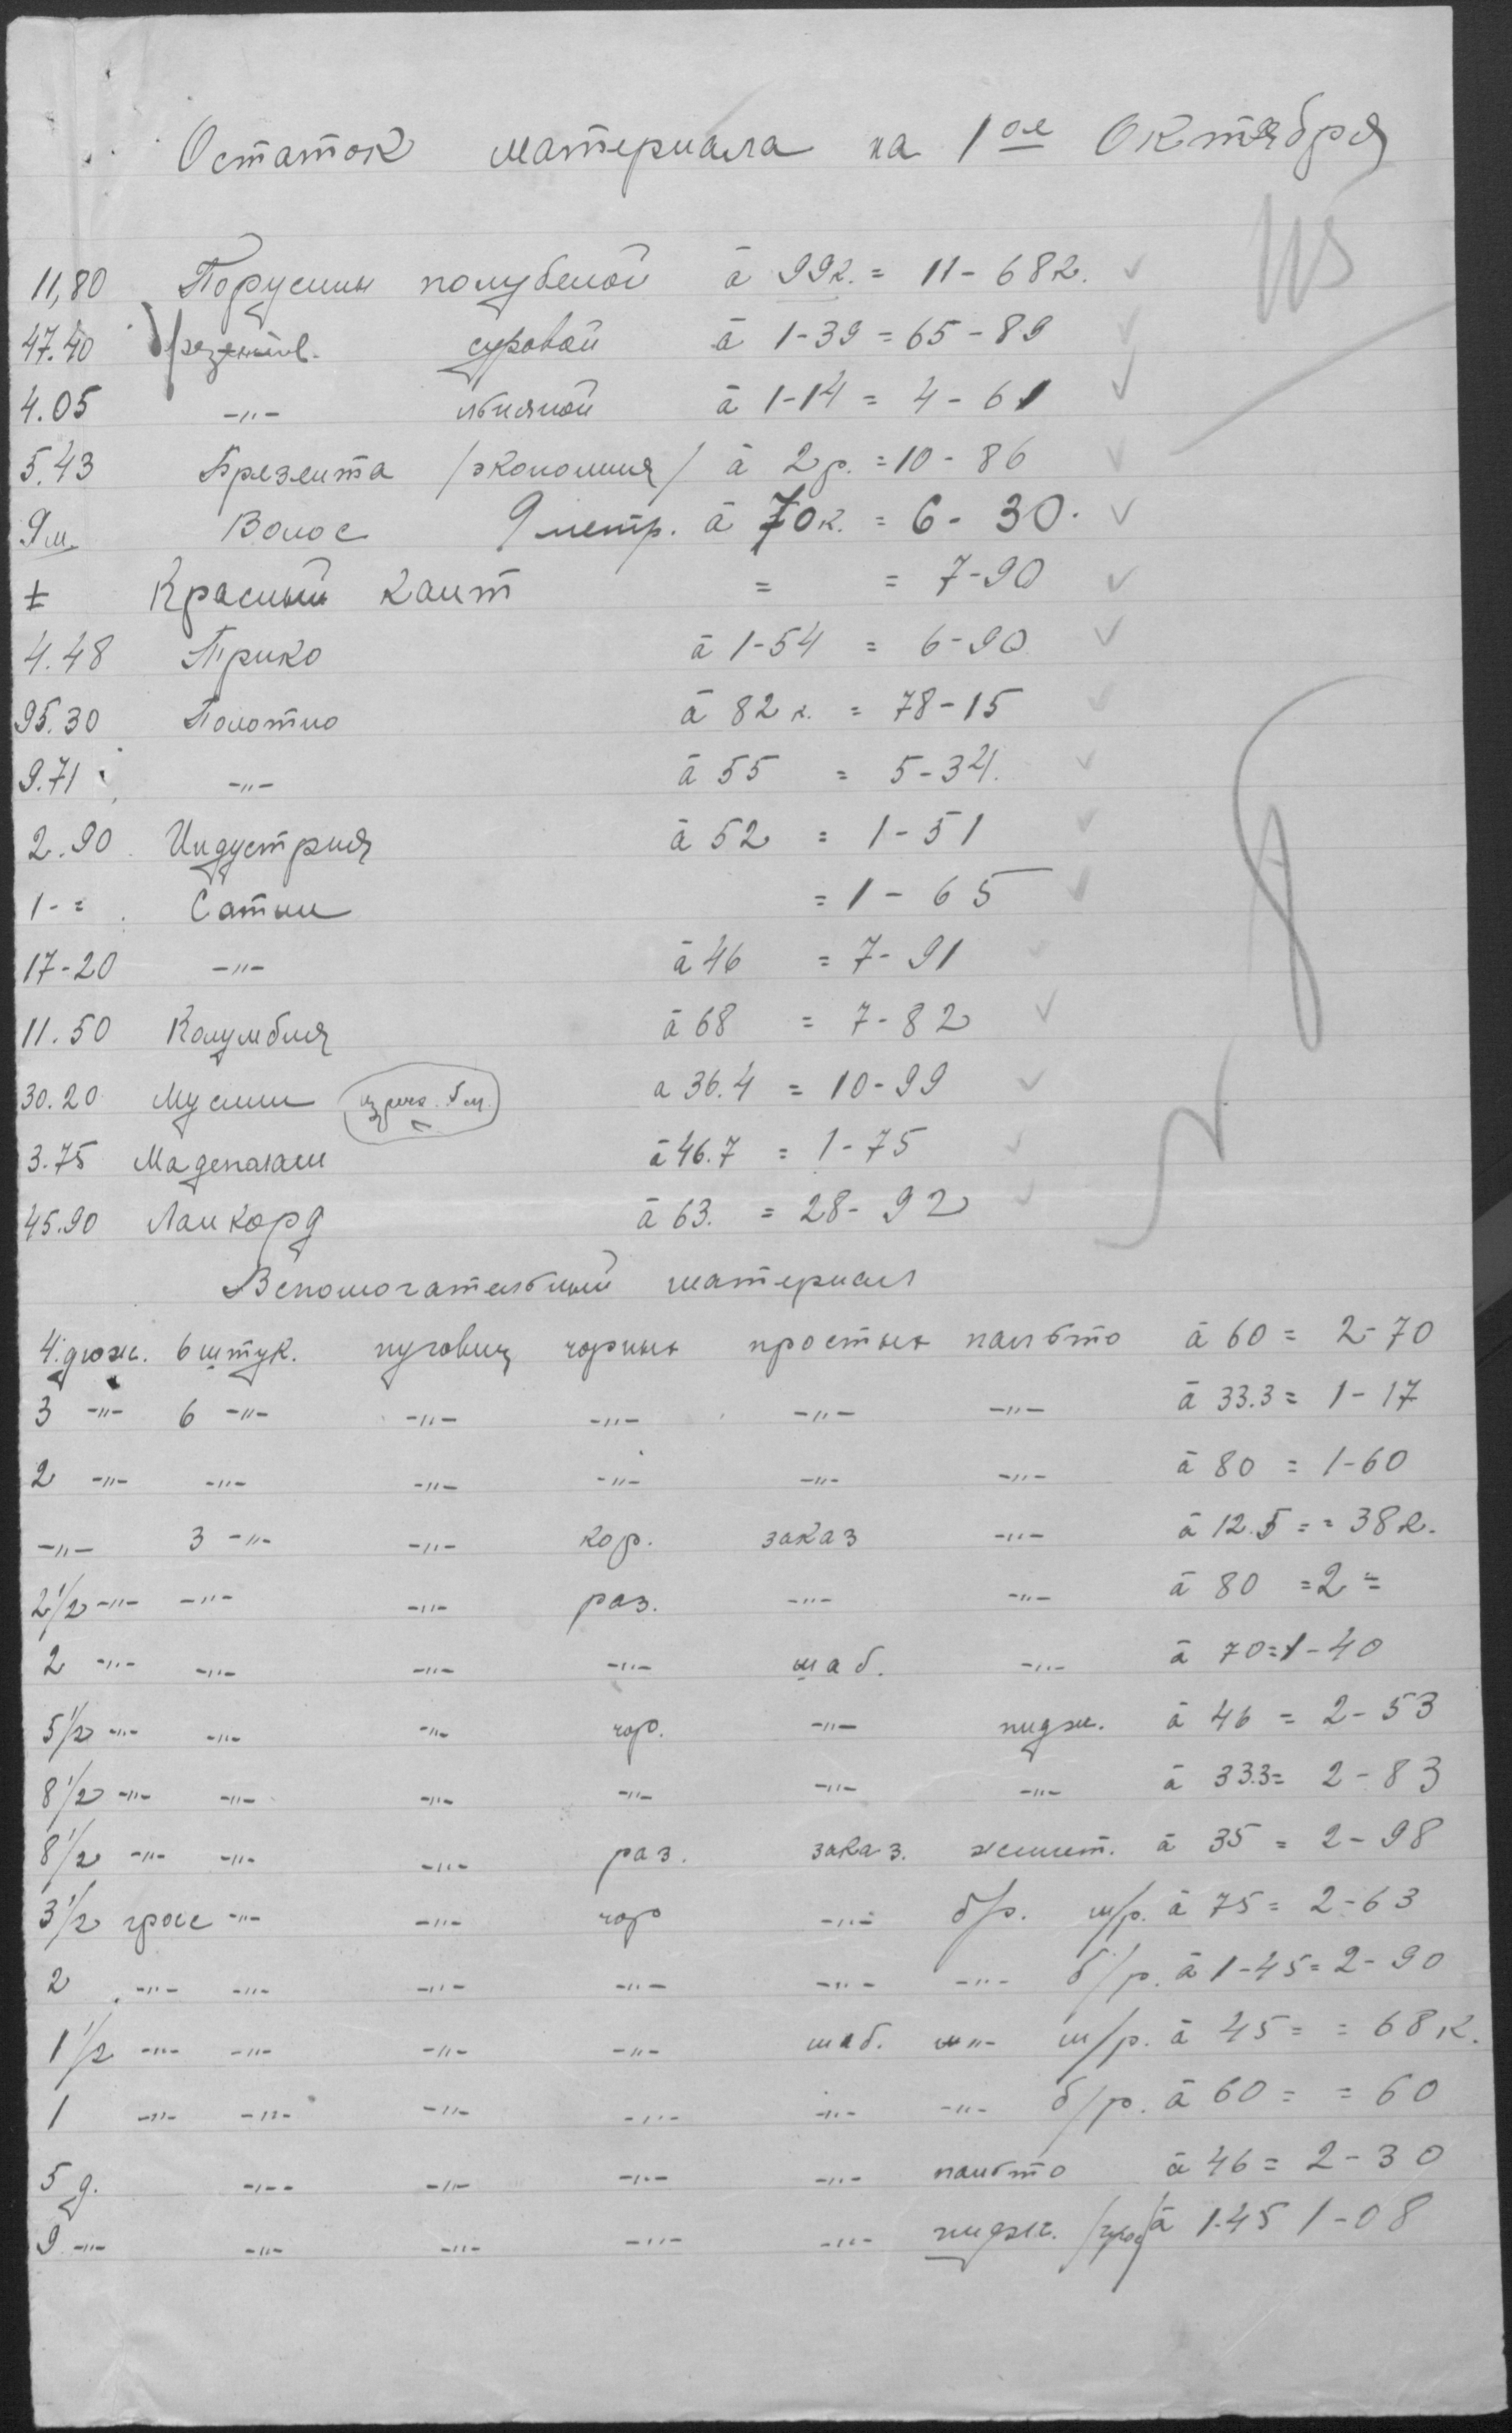 Остаток материала на 1ое Октября
11,80 Порусины полубелой à 99к. = 11-68к.
47.40 суровой à 1-39 = 65-89
4.05 -"- льняной à 1-14 = 4-61
5.43 Брезента /экономия/ à 2р. = 10-86
9м. Волос 9 метр. à 70к. = 6-30.
± Красный кант = = 7-90
4.48 Трико à 1-54 = 6-90
95.30 Полотно à 82к. = 78-15
9.71 -"- à 55 = 5-34.
2.90 Индустрия à 52 = 1-51
1-= Сатин = 1-65
17-20 -"- à 46 = 7-91
11.50 Колумбия à 68 = 7-82
30.20 Муслин а 36.4 = 10-99
3.75 Мадеполам à 46.7 = 1-75
45.90 Ланкорд à 63. = 28-92
Вспомогательный материал
4 дюж. 6 штук. пуговиц чорных простых пальто à 60 = 2-70
3 -"- 6 -"- -"- -"- -"- -"- à 33.3 = 1-17
2 -"- -"- -"- -"- -"- -"- à 80 = 1-60
-"- 3 -"- -"- кор. заказ -"- à 12.5 = = 38к.
2 1/2 -"- -"- -"- раз. -"- -"- à 80 = 2 =
2 -"- -"- -"- -"- шаб. -"- à 70 = 1-40
5 1/2 -"- -"- -"- чор. -"- пидж. à 46 = 2-53
8 1/2 -"- -"- -"- -"- -"- -"- à 33.3 = 2-83
8 1/2 -"- -"- -"- раз. заказ. жилет. à 35 = 2-98
3 1/2 грос -"- -"- чор -"- б/р. м/р. à 75 = 2-63
2 -"- -"- -"- -"- -"- -"- б/р. à 1-45 = 2-90
1 1/2 -"- -"- -"- -"- шаб. -"- м/р. à 45 = = 68к.
1 -"- -"- -"- -"- -"- -"- б/р. à 60 = = 60
5 д. -"- -"- -"- -"- пальто à 46 = 2-30
9 -"- -"- -"- -"- -"- пидж. /грос/ à 1.45 1-08